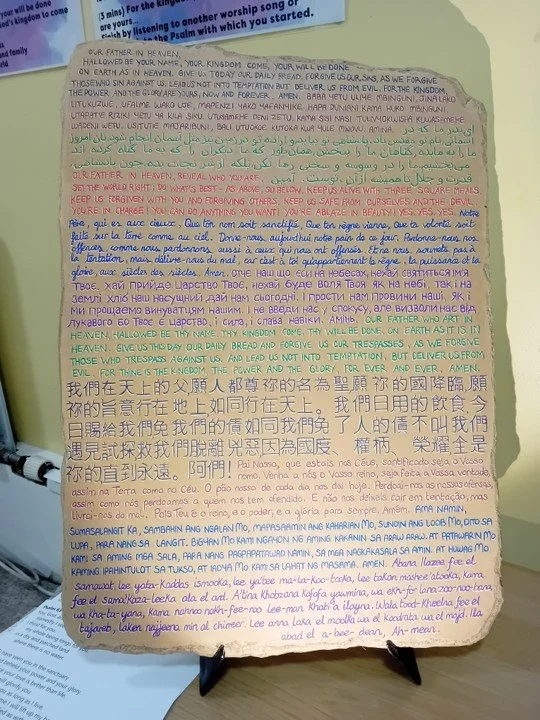 your will be done
God's kingdom to come
family
and world
(3 mins) For the kingdom
are yours...
Finish by listening to another worship song or
Psalm with which you started.
OUR FATHER IN HEAVEN,
HALLOWED BE YOUR NAME, YOUR KINGDOM COME, YOUR WILL BE DONE
ON EARTH AS IN HEAVEN. GIVE US TODAY OUR DAILY BREAD. FORGIVE US OUR SINS, AS WE FORGIVE
THOSE WHO SIN AGAINST US. LEAD US NOT INTO TEMPTATION BUT DELIVER US FROM EVIL. FOR THE KINGDOM,
THE POWER, AND THE GLORY ARE YOURS, NOW AND FOREVER. AMEN. BABA YETU ULIYE MBINGUNI, JINA LAKO
LITUKUZWE, UFALME WAKO UJE, MAPENZI YAKO YAFANYIKE, HAPA DUNIANI KAMA HUKO MBINGUNI.
UTUPATIE RIZIKI YETU YA KILA SIKU. UTUSAMEHE DENI ZETU, KAMA SISI NASI TULIVYOKWISHA KUWASAMEHE
WADENI WETU. USITUTIE MAJARIBUNI, BALI UTUOKOE KUTOKA KWA YULE MWOVU. AMINA. ای پدر ما که در
آسمانی نام تو مقدس باد. پادشاهی تو بیاید و اراده تو در زمین نیز مثل آسمان انجام شود. نان امروز
ما را به ما بده. گناهان ما را ببخش همان‌طور که ما دیگران را که به ما گناه کرده اند
می بخشیم. ما را در وسوسه و سختی رها نکن بلکه از شر نجات بده. چون پادشاهی
قدرت و جلال تا همیشه از آن توست. آمین.
OUR FATHER IN HEAVEN, REVEAL WHO YOU ARE.
SET THE WORLD RIGHT; DO WHAT'S BEST - AS ABOVE, SO BELOW. KEEP US ALIVE WITH THREE SQUARE MEALS.
KEEP US FORGIVEN WITH YOU AND FORGIVING OTHERS. KEEP US SAFE FROM OURSELVES AND THE DEVIL.
YOU'RE IN CHARGE! YOU CAN DO ANYTHING YOU WANT! YOU'RE ABLAZE IN BEAUTY! YES. YES. YES. Notre
Père, qui es aux cieux. Que ton nom soit sanctifié, Que ton règne vienne, que ta volonté soit
faite sur la terre comme au ciel. Donne-nous aujourd'hui notre pain de ce jour. Pardonne-nous nos
offenses, comme nous pardonnons aussi à ceux qui nous ont offensés. Et ne nous soumets pas à
la tentation, mais délivre-nous du mal, car c'est à toi qu'appartiennent le règne, la puissance et la
gloire, aux siècles des siècles. Amen. ОТЧЕ НАШ ЩО ЄСИ НА НЕБЕСАХ, НЕХАЙ СВЯТИТЬСЯ ІМ'Я
ТВОЄ. ХАЙ ПРИЙДЕ ЦАРСТВО ТВОЄ, НЕХАЙ БУДЕ ВОЛЯ ТВОЯ ЯК НА НЕБІ, ТАК І НА
ЗЕМЛІ ХЛІБ НАШ НАСУЩНИЙ ДАЙ НАМ СЬОГОДНІ. І ПРОСТИ НАМ ПРОВИНИ НАШІ, ЯК І
МИ ПРОЩАЄМО ВИНУВАТЦЯМ НАШИМ. І НЕ ВВЕДИ НАС У СПОКУСУ, АЛЕ ВИЗВОЛИ НАС ВІД
ЛУКАВОГО БО ТВОЄ Є ЦАРСТВО, І СИЛА, І СЛАВА НАВІКИ. АМІНЬ. OUR FATHER WHO ART IN
HEAVEN, HALLOWED BE THY NAME. THY KINGDOM COME, THY WILL BE DONE, ON EARTH AS IT IS IN
HEAVEN. GIVE US THIS DAY OUR DAILY BREAD AND FORGIVE US OUR TRESPASSES, AS WE FORGIVE
THOSE WHO TRESPASS AGAINST US. AND LEAD US NOT INTO TEMPTATION, BUT DELIVER US FROM
EVIL. FOR THINE IS THE KINGDOM, THE POWER AND THE GLORY, FOR EVER AND EVER. AMEN.
我們在天上的父願人都尊祢的名為聖願祢的國降臨,願
祢的旨意行在地上如同行在天上。我們日用的飲食,今
日賜給我們免我們的債如同我們免了人的債不叫我們
遇見試探救我們脫離兇惡因為國度、權柄、榮耀全是
祢的直到永遠。阿們! Pai Nosso, que estais nos Céus, santificado seja o Vosso
nome. Venha a nós o Vosso reino, seja feita a Vossa vontade,
assim na Terra como no Céu. O pão nosso de cada dia nos dai hoje. Perdoai-nos as nossas ofensas,
assim como nós perdoamos a quem nos tem ofendido. E não nos deixeis cair em tentação, mas
livrai-nos do mal. Pois Teu é o reino, e o poder, e a glória para sempre. Amém. AMA NAMIN,
SUMASALANGIT KA, SAMBAHIN ANG NGALAN MO, MAPASAAMIN ANG KAHARIAN MO, SUNDIN ANG LOOB MO, DITO SA
LUPA, PARA NANG SA LANGIT. BIGYAN MO KAMI NGAYON NG AMING KAKANIN SA ARAW ARAW. AT PATAWARIN MO
KAMI SA AMING MGA SALA, PARA NANG PAGPAPATAWAD NAMIN, SA MGA NAGKAKASALA SA AMIN. AT HUWAG MO
KAMING IPAHINTULOT SA TUKSO, AT IADYA MO KAMI SA LAHAT NG MASAMA. AMEN. Abana llazee fee el
samawat, lee yata-kaddas ismooka, lee ya'tee ma-la-koo-tooka, lee takon mashee'atooka, kama
fee el sama'kaza-leeka ala el ard. A'tina Khobzana kafafa yawmina, wa ekh-fer lana zoo-noo-bana,
wa kha-ta-yana, kama nahno nakh-fee-roo lee-man Khata'a ilayna. Wala tood-Kheelna fee el
tajareb, laken najjeena min al shireer. Lee anna laka el moolka wa el koodrata wa el majd. Ila
abad el-a-bee-deen, Ah-mean.